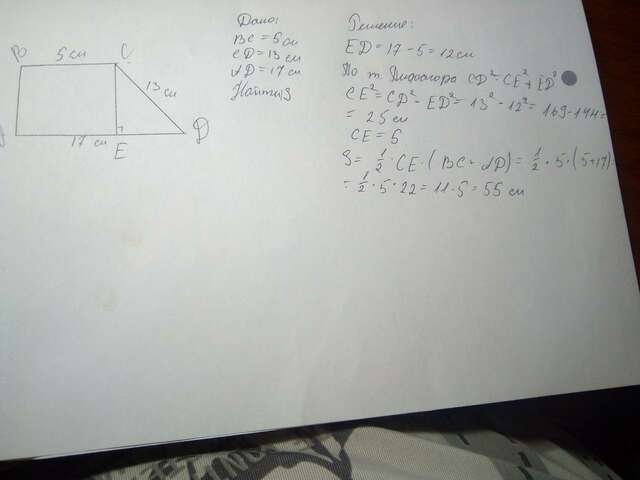 B 5 см C
13 см
17 см
E
D
Дано:
BC = 5 см
CD = 13 см
AD = 17 см
Найти S
Решение:
ED = 17 - 5 = 12 см
По т. Пифагора CD² = CE² + ED²
CE² = CD² - ED² = 13² - 12² = 169 - 144 =
= 25 см
CE = 5
S = 1/2 · CE · (BC + AD) = 1/2 · 5 · (5+17) =
= 1/2 · 5 · 22 = 11 · 5 = 55 см